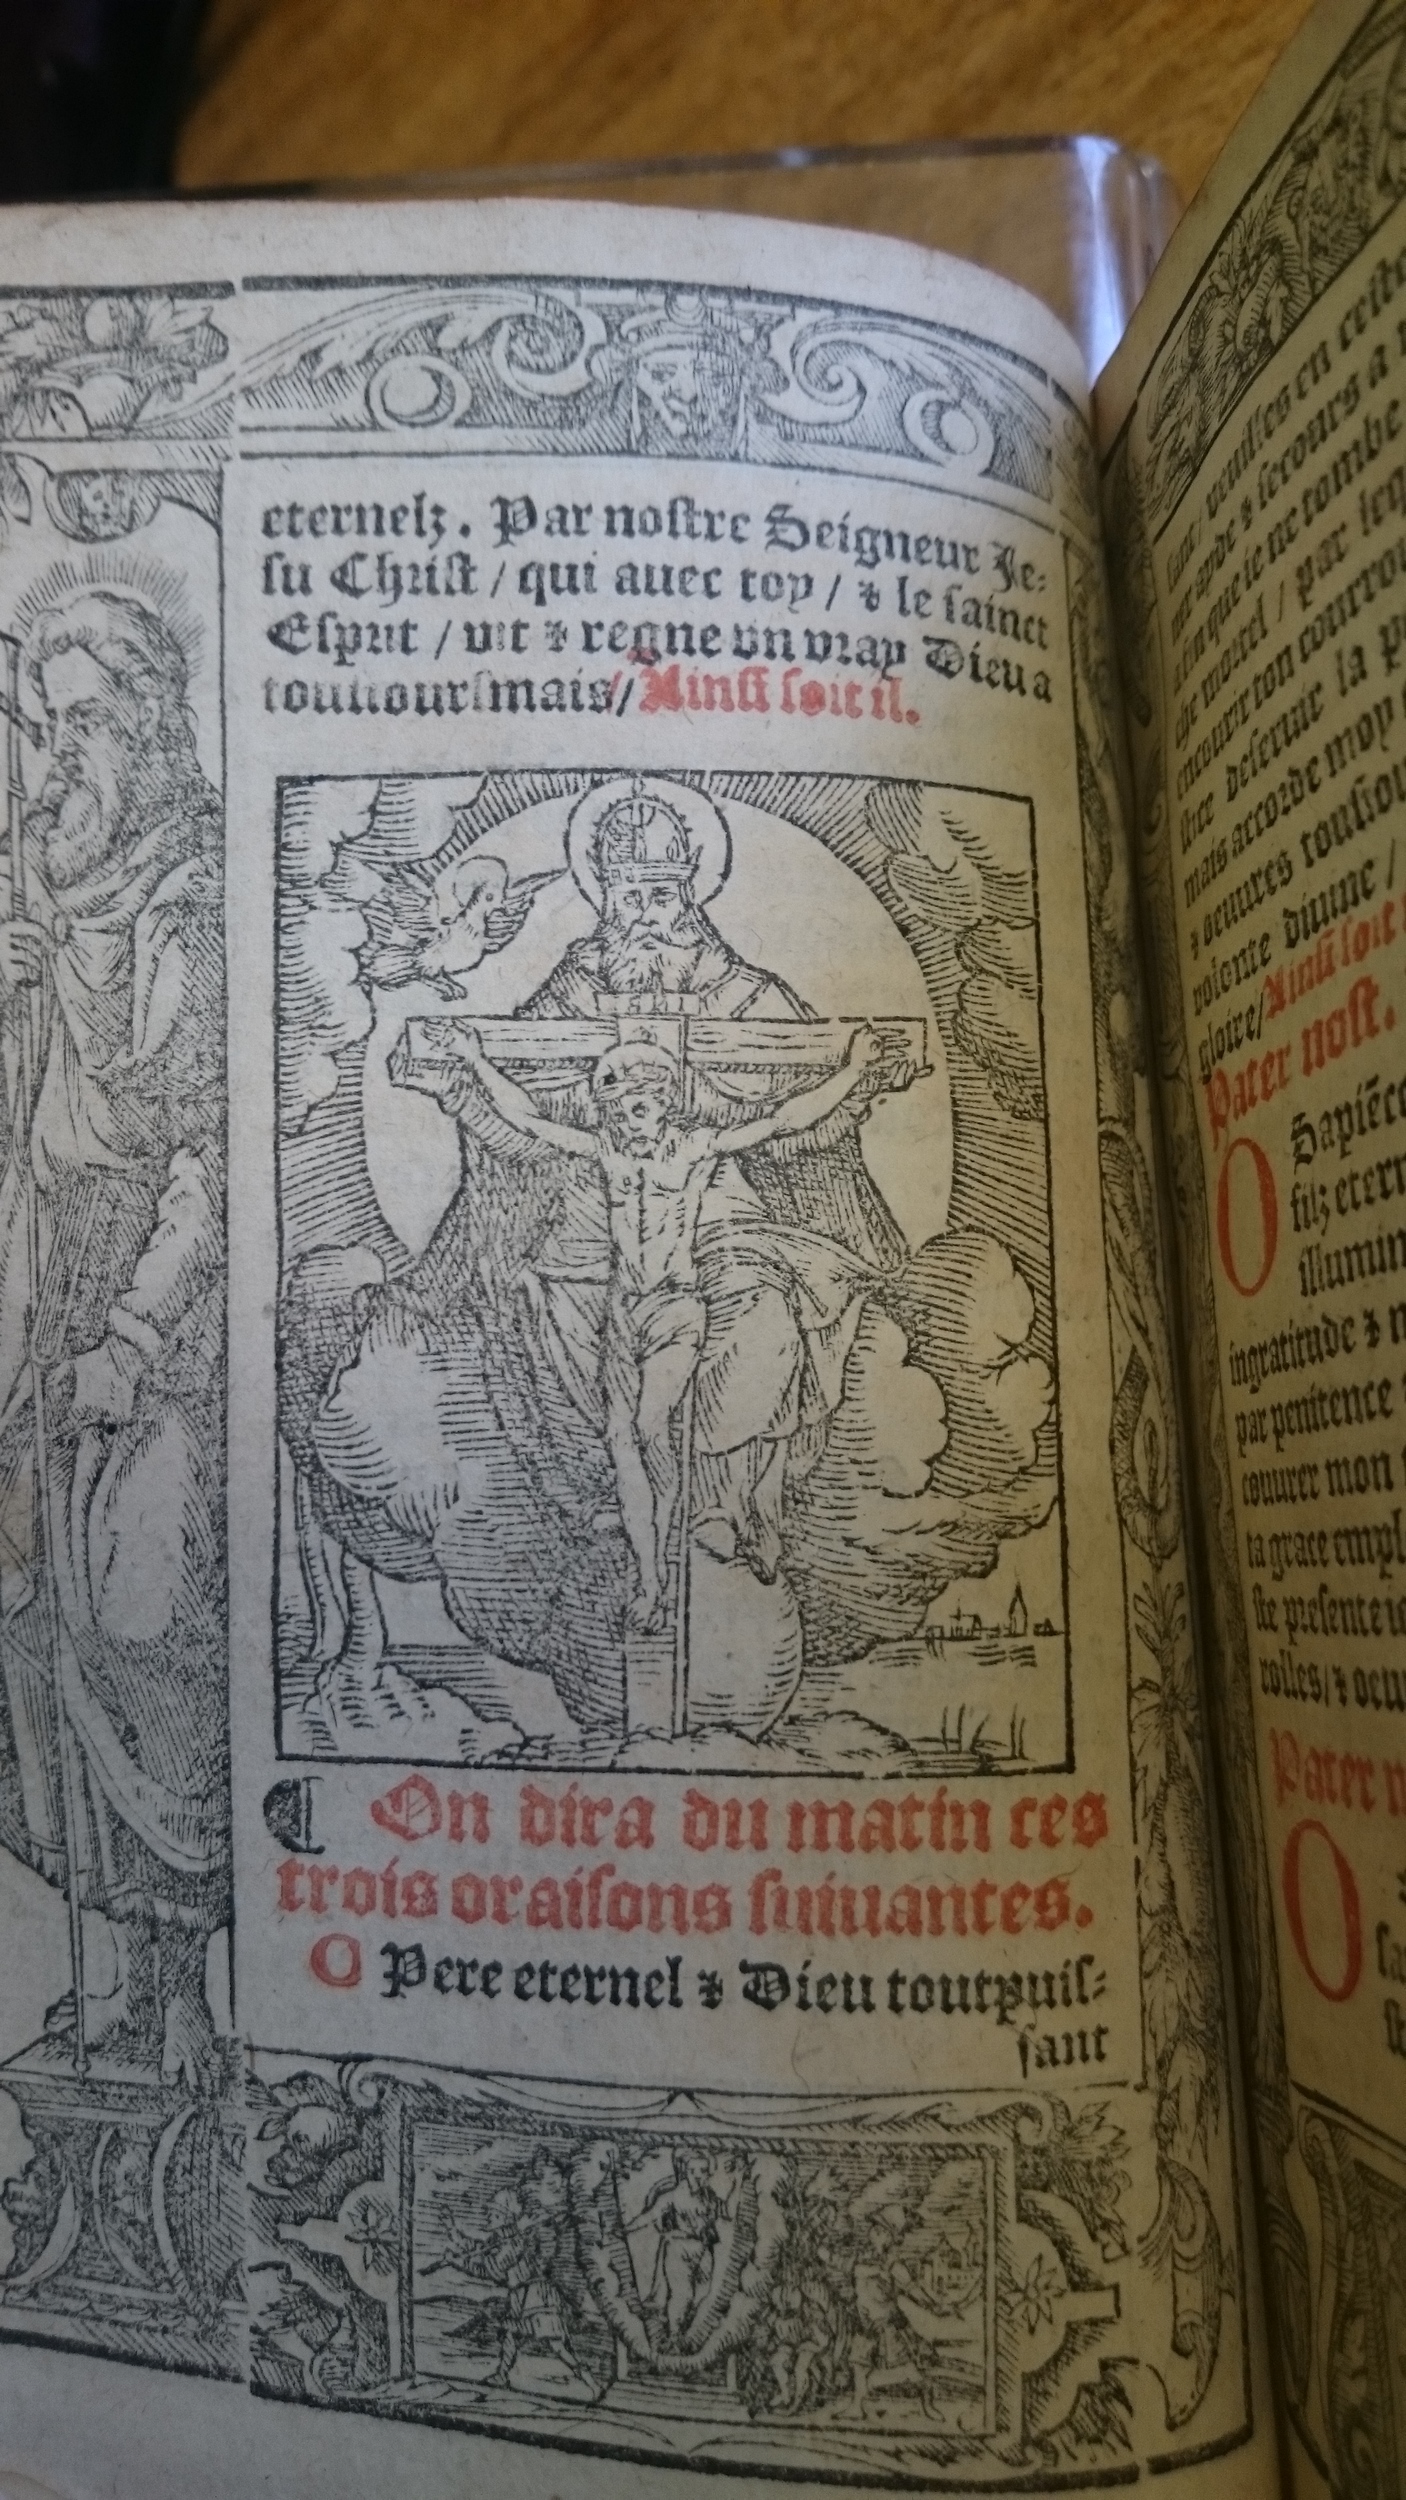 eternelz. Par nostre Seigneur Je-
su Christ / qui auec toy / & le sainct
Esprit / vit & regne vn vray Dieu a
tousioursmais/ Ainsi soit il.
INRI
¶ On dira du matin ces
trois oraisons suiuantes.
O Pere eternel & Dieu toutpuis-
sant
sant / vueilles en ceste
mer ayde & secours a
afin que ie ne tombe
che mortel / par leq
encourir ton courrou
stice deseruir la p
mais accorde moy
& oeuures tousiou
volonte diuine /
gloire/ Ainsi soit
Pater nost.
O Sapiēce
filz etern
illumin
ingratitude & m
par penitence
couurer mon
ta grace empl
ste presente io
rolles/ & oeu
Pater n
O